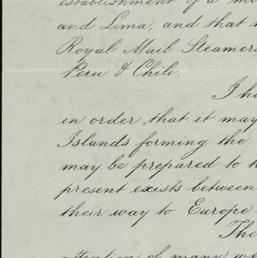 establishment of a
and Lima, and that
Royal Mail Steamers
Peru & Chili.
I ha
in order that it may
Islands forming the
may be prepared to
present exists between
their way to Europe
The
attention of many